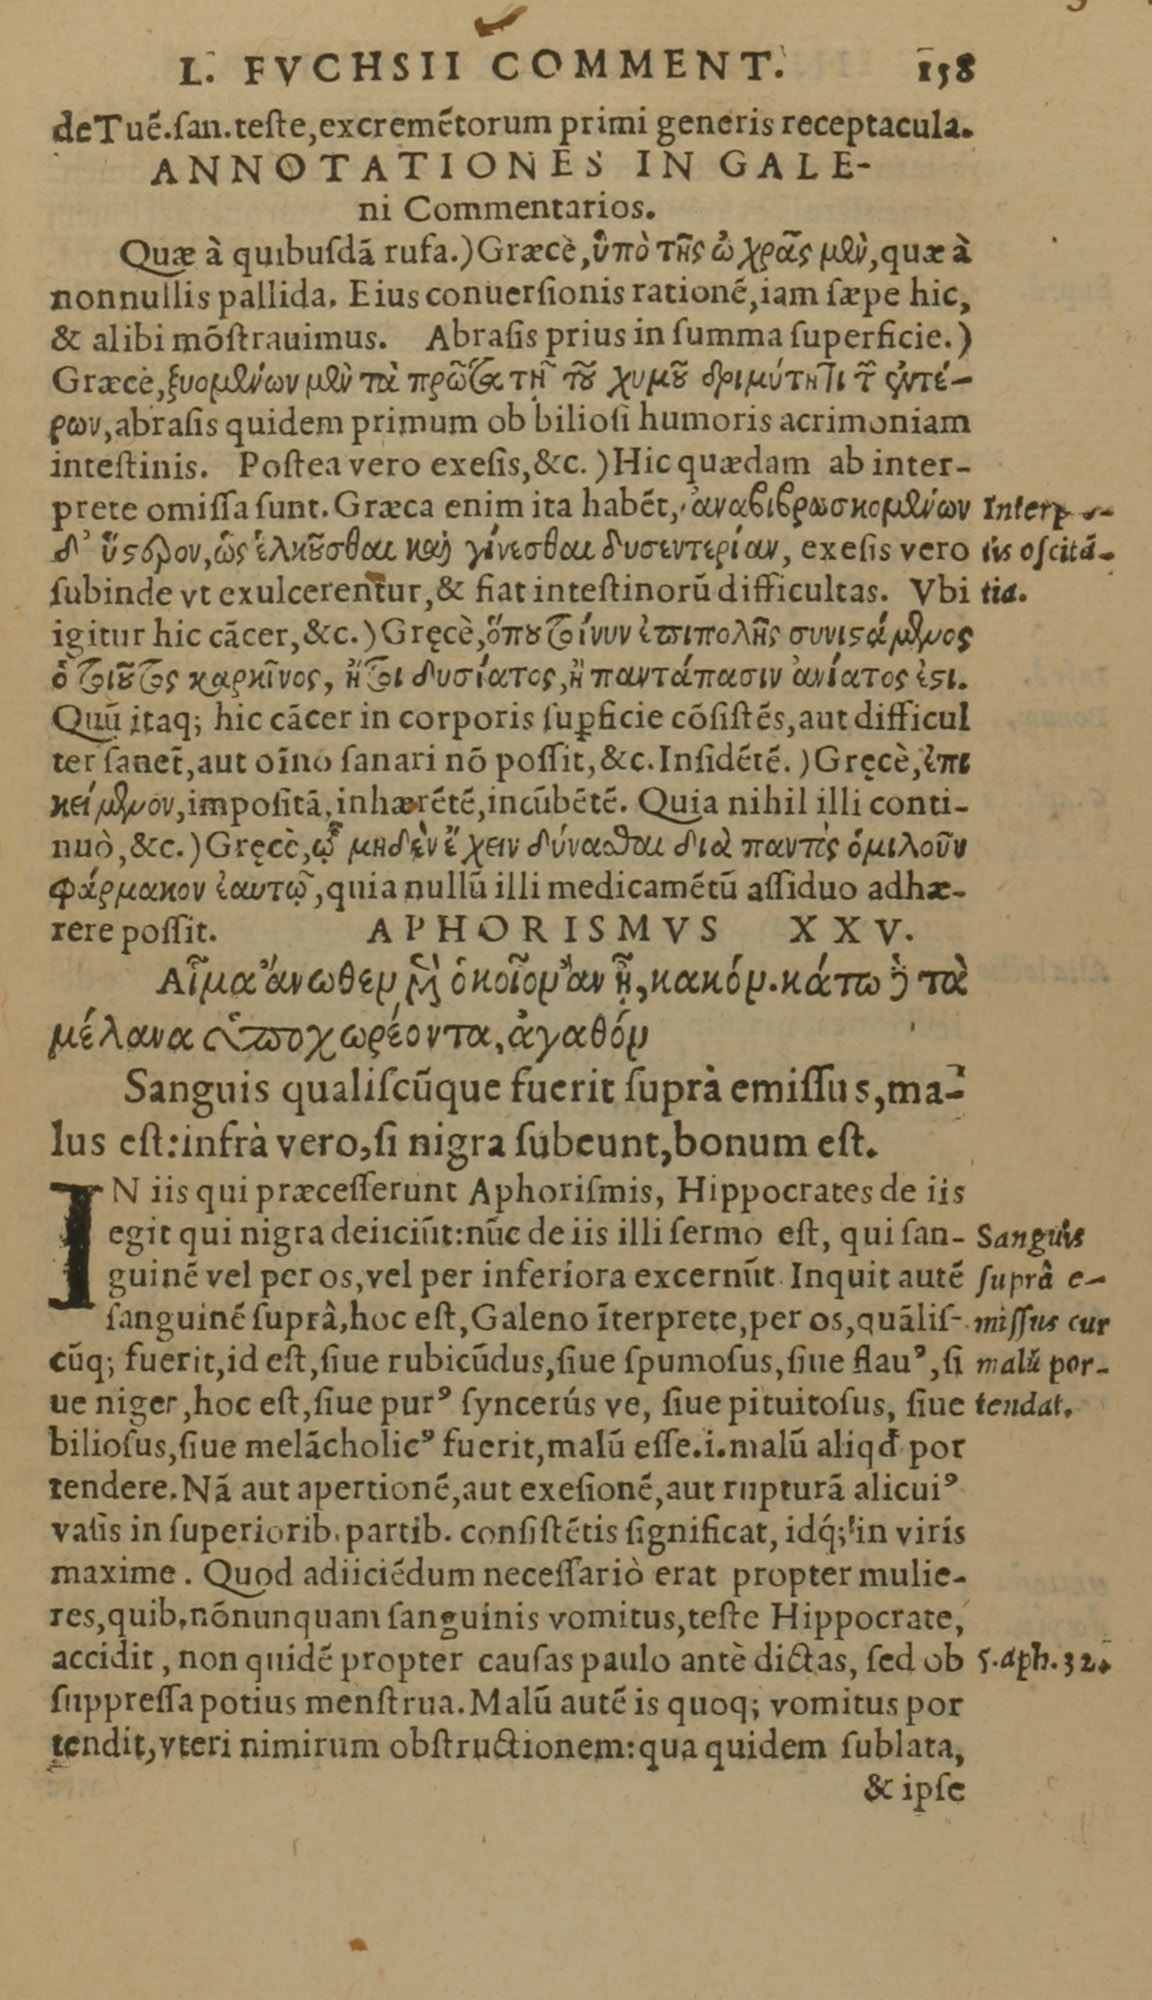 L. FVCHSII COMMENT. 158
de Tuẽ.ſan.teſte,excremẽtorum primi generis receptacula.
ANNOTATIONES IN GALE-
ni Commentarios.
Quæ à quibuſdã rufa.)Græcè,ὑπὸ τῆς ὠχρᾶς μὲν,quæ à
nonnullis pallida. Eius conuerſionis rationẽ,iam ſæpe hic,
& alibi mõſtrauimus. Abraſis prius in ſumma ſuperficie.)
Græcè,ξυομένων μὲν τὰ πρῶτα τῇ τοῦ χυμοῦ δριμύτητι τῶν ἐντέ-
ρων,abraſis quidem primum ob bilioſi humoris acrimoniam
inteſtinis. Poſtea vero exeſis,&c.)Hic quædam ab inter-
prete omiſſa ſunt. Græca enim ita habẽt, ἀναβιβρωσκομένων
δ’ ὕστερον,ὡς ἑλκοῦσθαι καὶ γίνεσθαι δυσεντερίαν, exeſis vero
ſubinde vt exulcerentur,& fiat inteſtinorũ difficultas. Vbi
igitur hic cãcer,&c.)Gręcè,ὅπου τοίνυν ἐπιπολῆς συνιστάμενος
ὁ τοιοῦτος καρκῖνος, ἤτοι δυσίατος,ἢ παντάπασιν ἀνίατος ἐστι.
Quũ itaq; hic cãcer in corporis ſuꝑficie cõſiſtẽs,aut difficul
ter ſanet̃,aut oĩno ſanari nõ poſſit,&c.Inſidẽtẽ.)Gręcè,ἐπι
κείμενον,impoſitã,inhærẽtẽ,incũbẽtẽ. Quia nihil illi conti-
nuò,&c.)Gręcè,ᾧ μηδὲν ἔχειν δύνασθαι διὰ παντὸς ὁμιλοῦν
φάρμακον ἑαυτῷ,quia nullũ illi medicamẽtũ aſſiduo adhæ-
rere poſſit. APHORISMVS XXV.
Αἷμα ἄνωθεν μὲν ὁκοῖον ἂν ᾖ, κακόν. κάτω δὲ τὰ
μέλανα ὑποχωρέοντα, ἀγαθόν
Sanguis qualiſcũque fuerit ſuprà emiſſus,ma-
lus eſt:infrà vero,ſi nigra ſubeunt,bonum eſt.
IN iis qui præceſſerunt Aphoriſmis, Hippocrates de iis
egit qui nigra deiiciũt:nũc de iis illi ſermo eſt, qui ſan-
guinẽ vel per os,vel per inferiora excernũt. Inquit autẽ
ſanguinẽ ſuprà,hoc eſt,Galeno ĩterprete,per os,quãliſ-
cũq; fuerit,id eſt,ſiue rubicũdus,ſiue ſpumoſus,ſiue flauꝰ,ſi
ue niger,hoc eſt,ſiue purꝰ ſyncerús ve, ſiue pituitoſus, ſiue
bilioſus,ſiue melãcholicꝰ fuerit,malũ eſſe.i.malũ aliqd̃ por
tendere.Nã aut apertionẽ,aut exeſionẽ,aut rupturã alicuiꝰ
vaſis in ſuperiorib. partib. conſiſtẽtis ſignificat, idq́; in viris
maxime. Quod adiiciẽdum neceſſariò erat propter mulie-
res,quib.nõnunquam ſanguinis vomitus,teſte Hippocrate,
accidit, non quidẽ propter cauſas paulo antè dictas, ſed ob
ſuppreſſa potius menſtrua. Malũ autẽ is quoq; vomitus por
tendit,vteri nimirum obſtructionem:qua quidem ſublata,
& ipſe
Interp-
tis oſcitã-
tia.
Sanguis
ſuprà e-
miſſus cur
malũ por-
tendat.
5.aph.32.